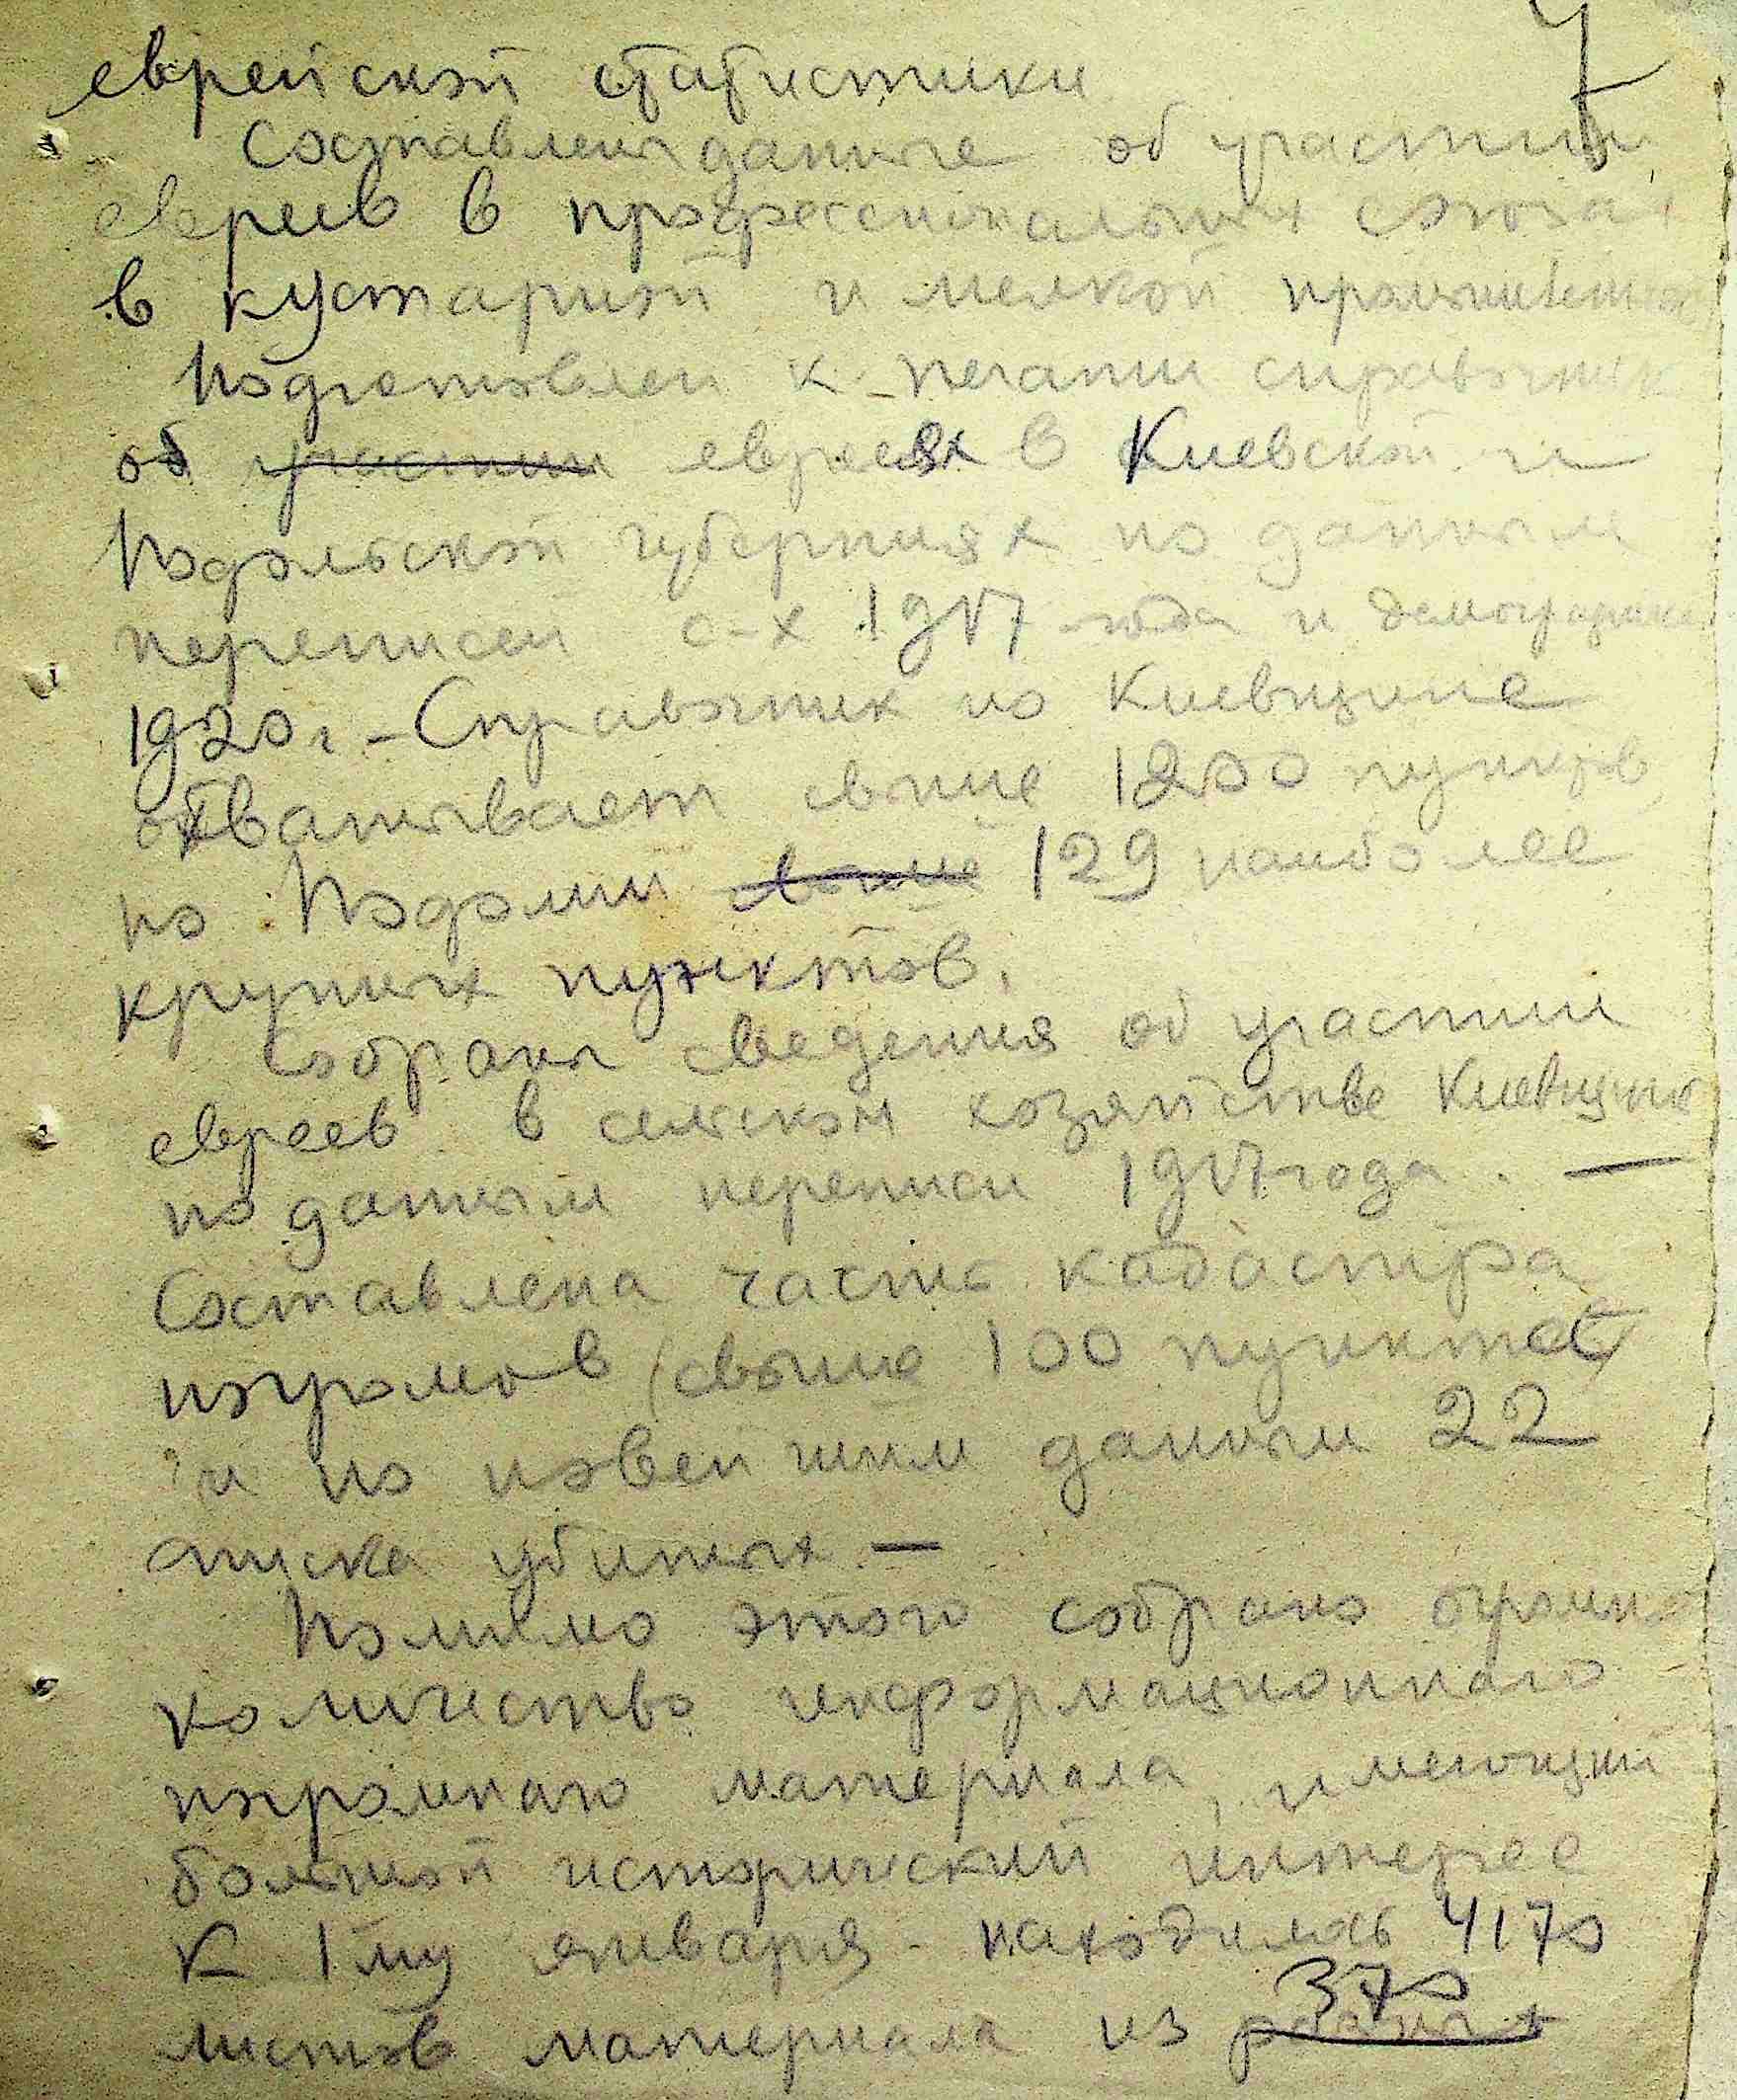 7
еврейской статистики
Составлены данные об участии
евреев в профессиональных союзах
в кустарной и мелкой промышленно
Подготовлен к печати справочник
об участии евреях в Киевской и
Подольской губерниях по данным
переписей с-х 1917 года и демографичес
1920 г. – Справочник по Киевщине
охватывает свыше 1200 пунктов
по Подолии свыше 129 наиболее
крупных пунктов.
Собраны сведения об участии
евреев в сельском хозяйстве Киевщины
по данным переписи 1917 года. —
Составлена часть кадастра
погромов (свыше 100 пунктов)
и по новейшим данным 22
списка убитых —
Помимо этого собрано огромно
количество информационного
погромного материала, имеющий
большой исторический интерес
К 1му января находилось 4170
листов материала из разных
370